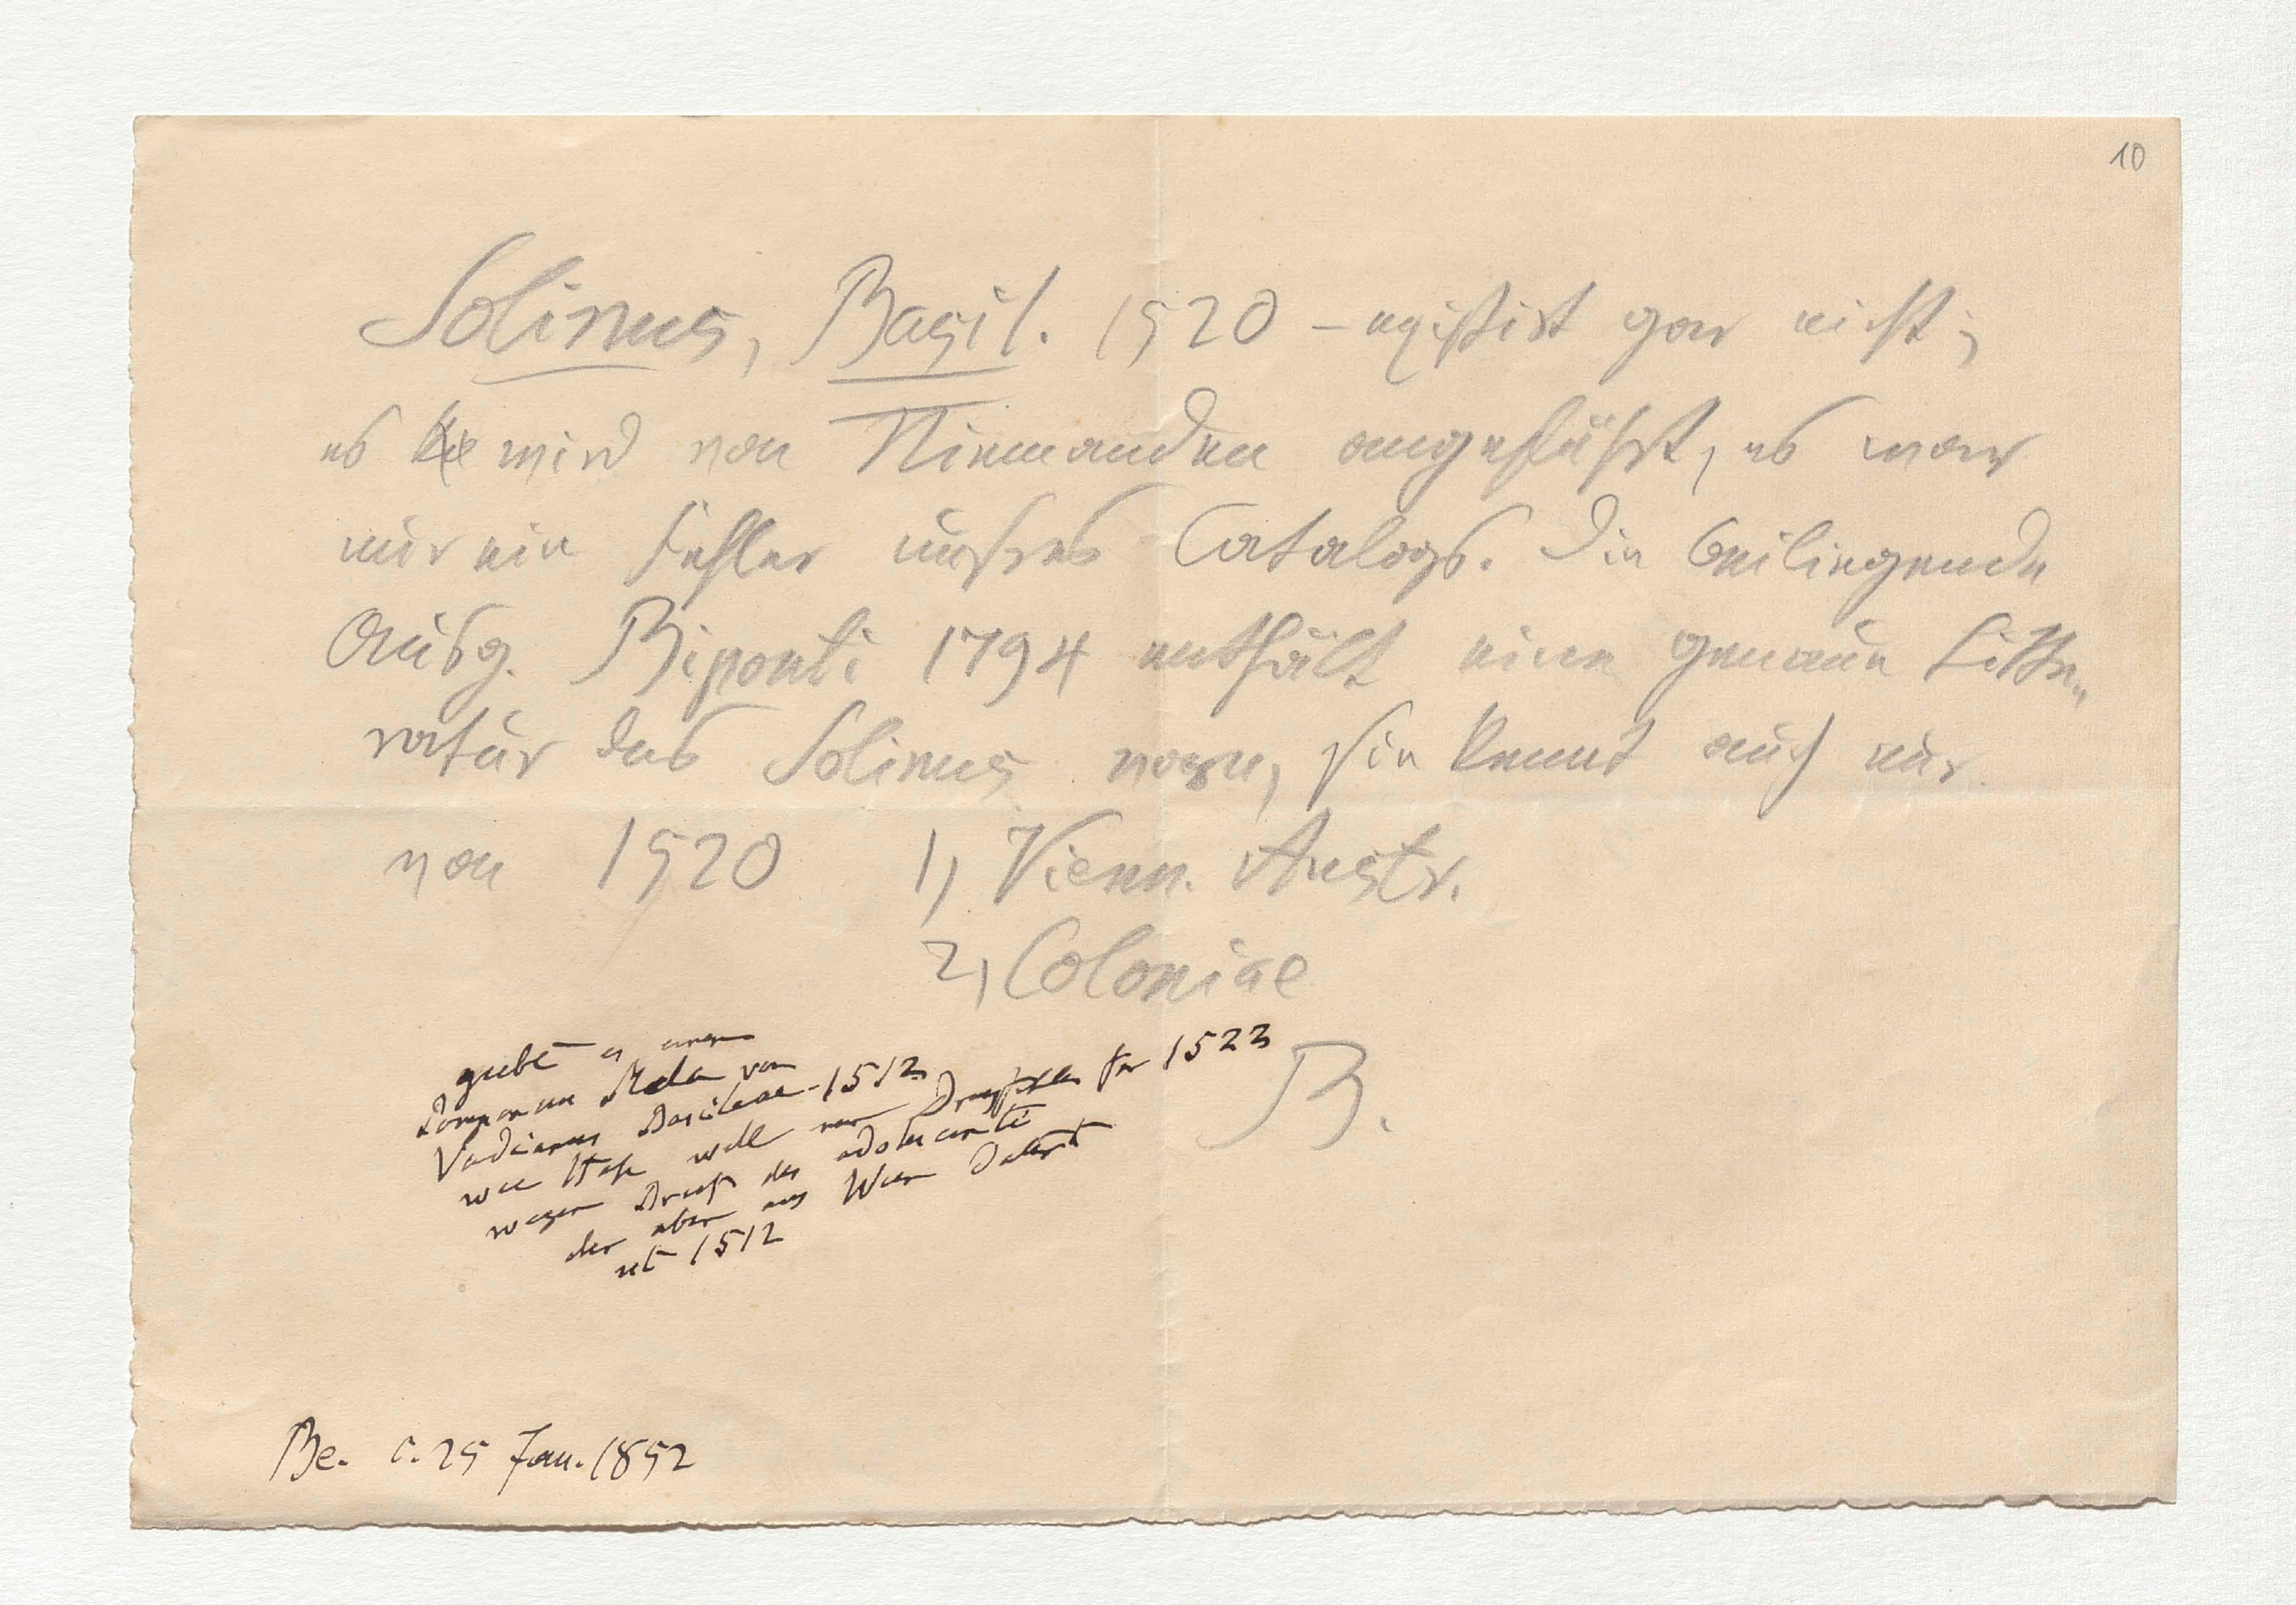 10
Solinus, Basil. 1520 – existirt gar nicht;
es wird von Niemanden angeführt, es war
nur ein Fehler unsres Catalogs. Die beiliegende
Ausg. Biponti 1794 enthält eine genaue Litte„
ratur des Solinus vorn, sie kennt auch nur
von 1520 1, Vienn. Austr.
2, Coloniae
B.
giebt es einen
Pomponius Mela von
Vadianus Basileae 1512
wie will nur Druckfehler für 1522
wegen Brief des adolescenti
der aber aus Wien datirt
ist 1512
Be. c. 25 Jan. 1852